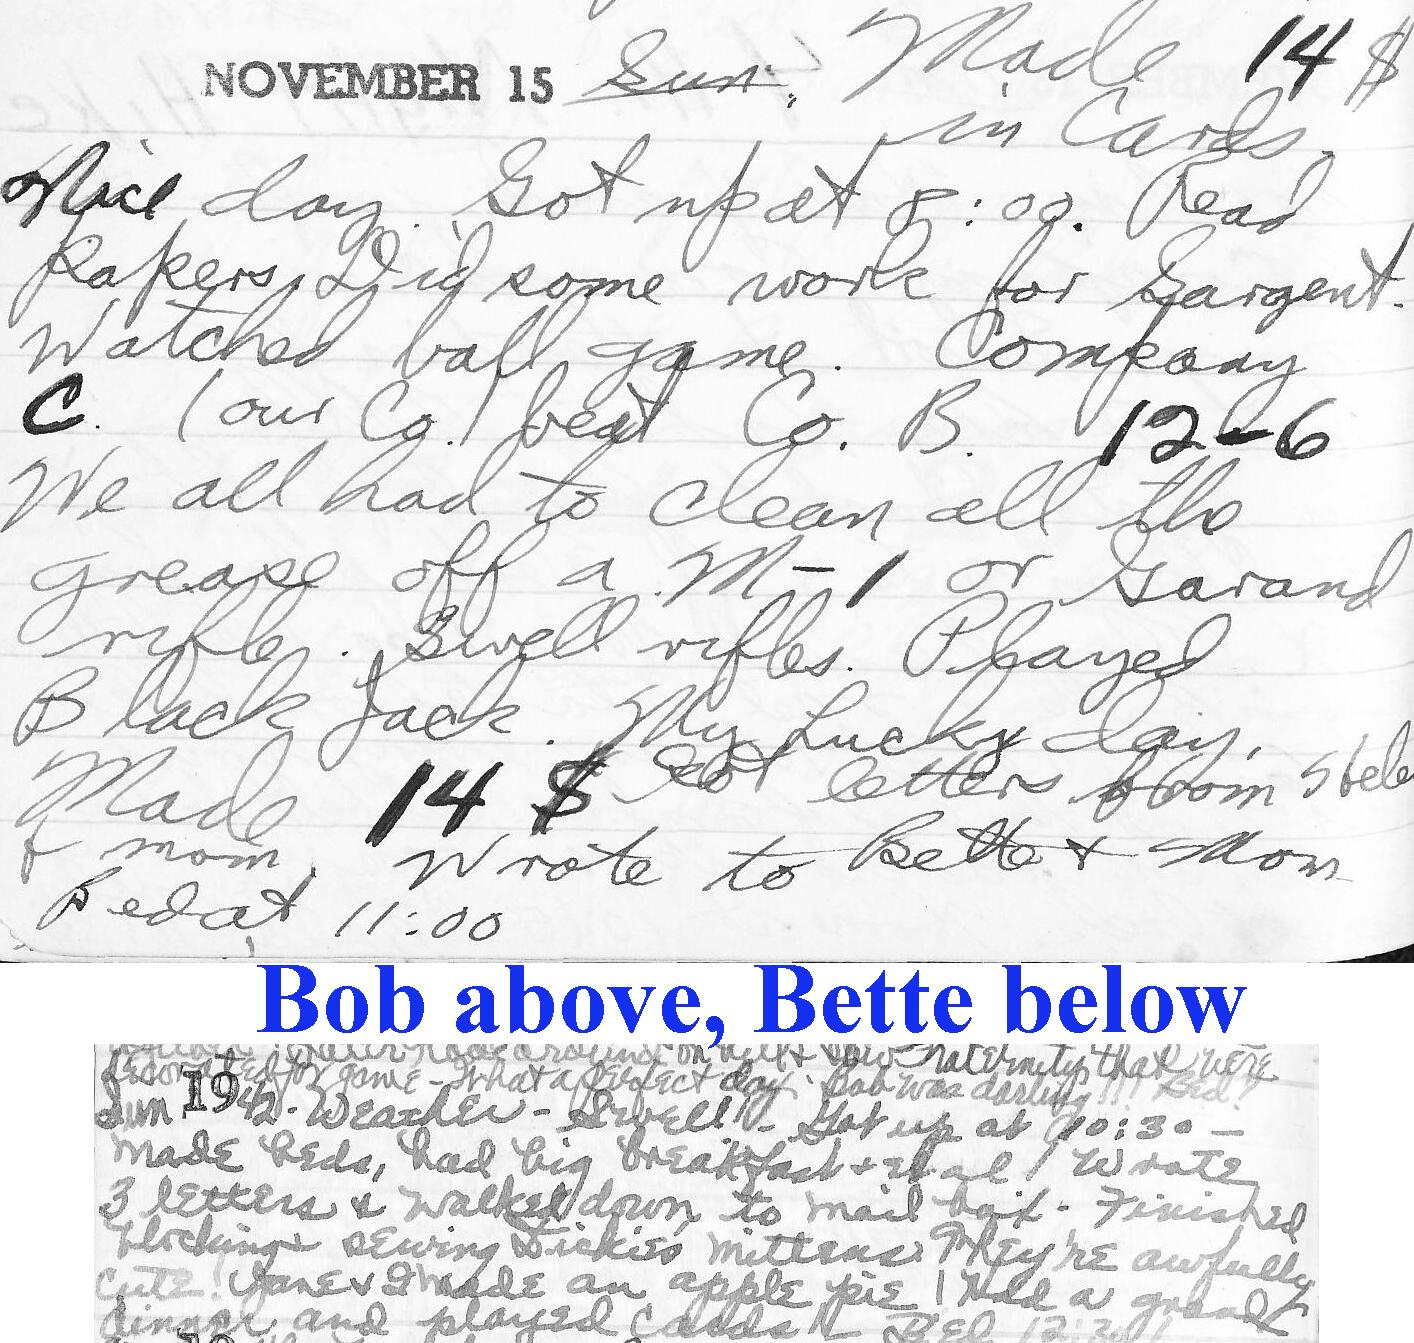 NOVEMBER 15 Sun. Made 14 $
in Cards.
Nice day. Got up at 8:00. Read
Papers, Did some work for Sargent.
Watched ball game. Company
C. (our Co.) beat Co. B. 12-6
We all had to clean all the
grease off a M-1 or Garand
rifle. Swell rifles. Played
Black Jack. My Lucky day.
Made 14 $ Got letters from
& mom. Wrote to Bette & Mom
Bed at 11:00
Bob above, Bette below
fraternity that were
decorated for game - What a perfect day. Bob was darling!!! Bed?
Sun 1942. Weather - Swell! - Got up at 10:30 -
Made beds, had big breakfast & ! Wrote
3 letters & walked down to mail - Finished
blocking & sewing Dickies mittens. They're awfully
cute! Jane & I made an apple pie! Had a grand
dinner and played cards!! Bed 12:30!
19